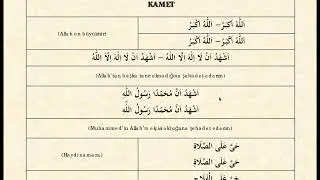 KAMET
اَللّٰهُ اَكْبَرُ – اَللّٰهُ اَكْبَرُ
(Allah en büyüktür)
اَللّٰهُ اَكْبَرُ – اَللّٰهُ اَكْبَرُ
اَشْهَدُ اَنْ لَا اِلٰهَ اِلَّا اللّٰهُ – اَشْهَدُ اَنْ لَا اِلٰهَ اِلَّا اللّٰهُ
(Allah'tan başka tanrı olmadığına şehadet ederim)
اَشْهَدُ اَنَّ مُحَمَّدًا رَسُولُ اللّٰهِ
اَشْهَدُ اَنَّ مُحَمَّدًا رَسُولُ اللّٰهِ
(Muhammed'in Allah'ın elçisi olduğuna şehadet ederim)
حَىَّ عَلَى الصَّلَاةِ
(Haydi namaza)
حَىَّ عَلَى الصَّلَاةِ
حَىَّ عَلَى الْفَلَاحِ